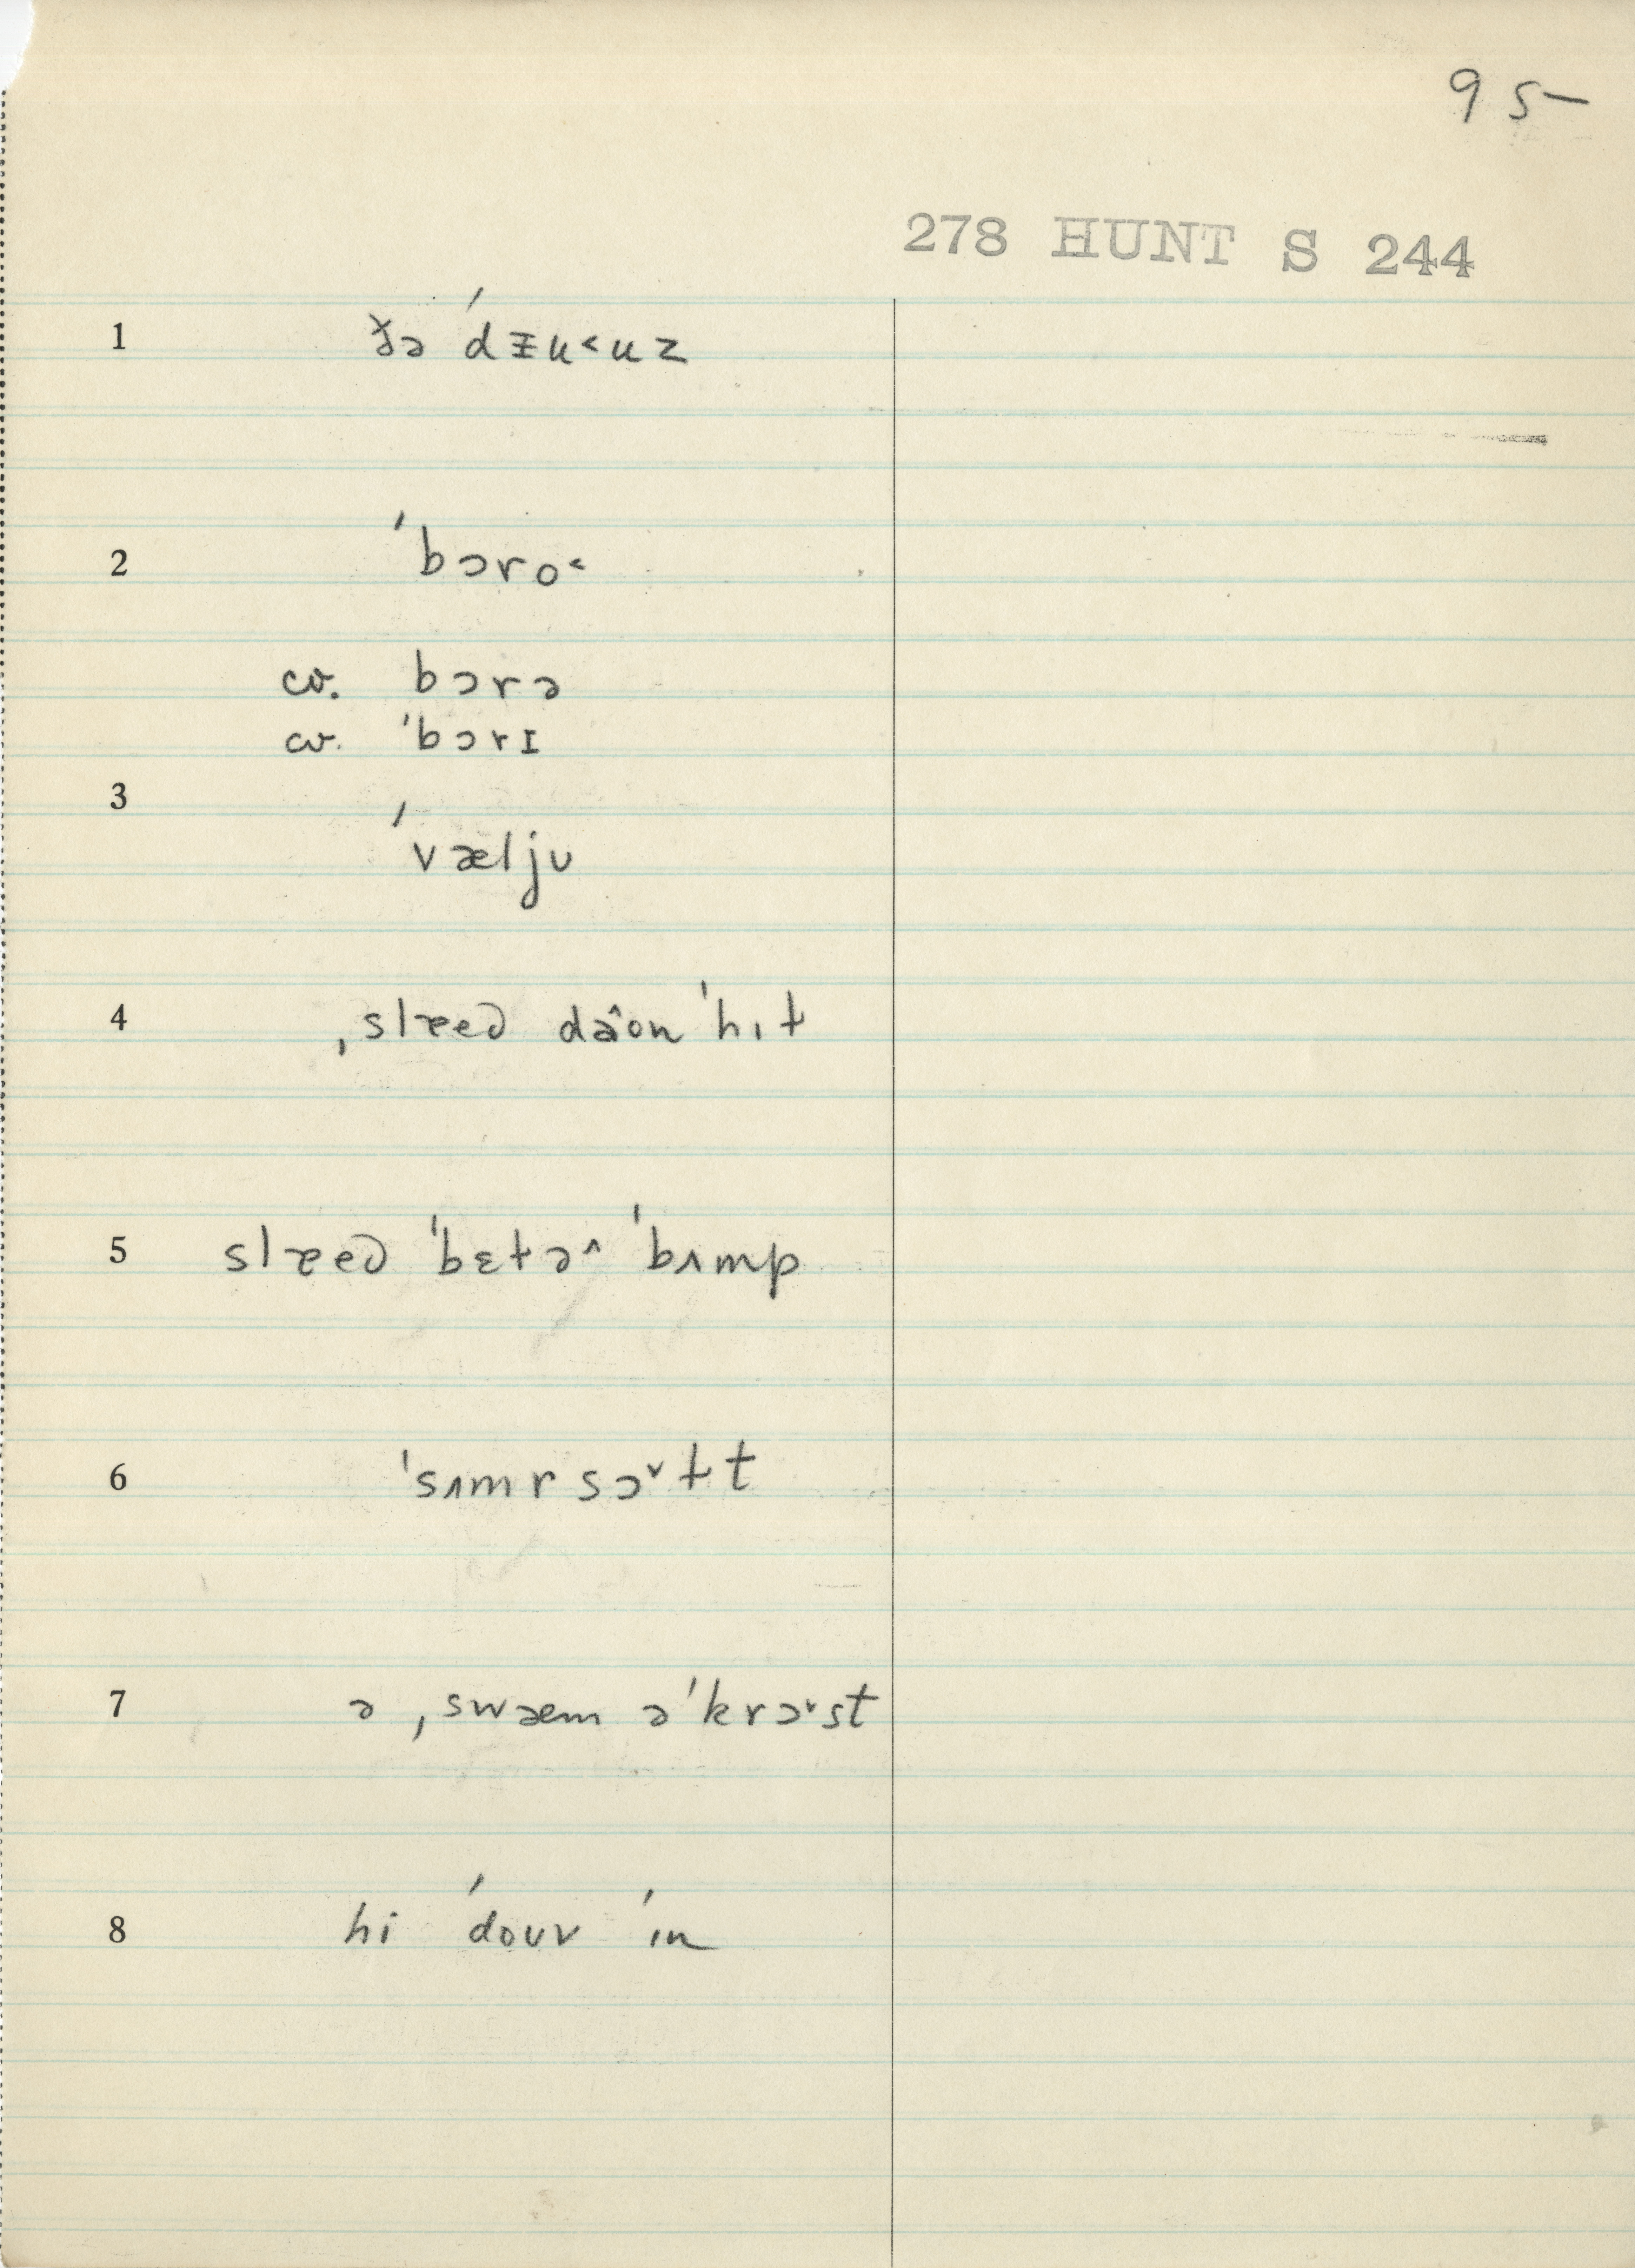 95
278 HUNT S 244
1 ðə ˈdƶu˂uz
2 ˈbɔro˂
cv. bɔrə
cv. ˈbɔrɪ
3 ˈvæljʊ
4 ˌslæed dâon ˈhɪt
5 slæed ˈbɛtə^ ˈbʌmp
6 ˈsʌmrsɔ˅ɫt
7 ə ˌswæem əˈkrɔ˅st
8 hi ˈdouv ˈɪn